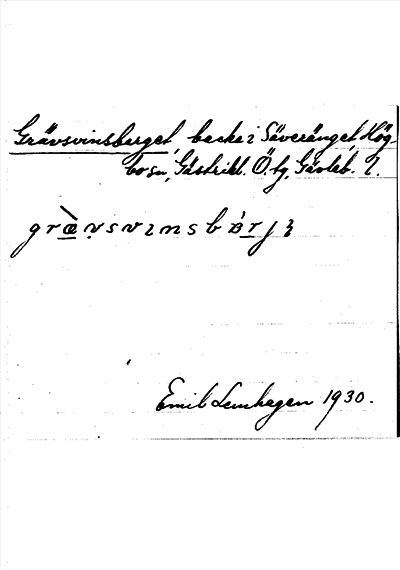 Grävsvinsberget, backe i Säveränget, Hög-
bo sn, Gästrikl. Ö. tg, Gävleb. l.
græ̀vsvınsbärjɜ
Emil Lenhagen 1930.